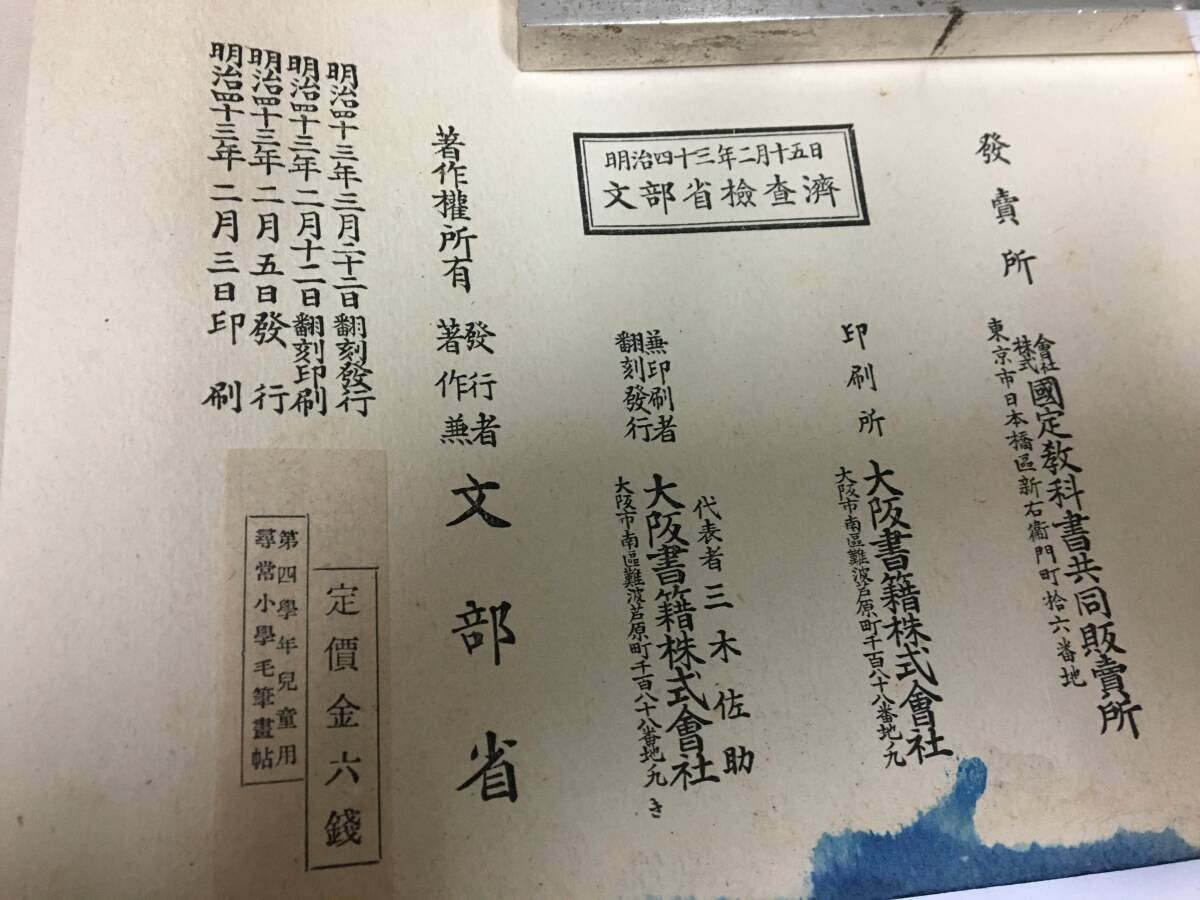 明治四十三年二月三日印刷
明治四十三年二月五日發行
明治四十三年二月十二日翻刻印刷
明治四十三年三月二十二日翻刻發行
尋常小學毛筆畫帖
第四學年兒童用
定價金六錢
著作權所有
著作兼
發行者
文部省
明治四十三年二月十五日
文部省檢查濟
翻刻發行
兼印刷者
大阪市南區難波芦原町千百八十八番地ノ九
き
大阪書籍株式會社
代表者三木佐助
印刷所
大阪市南區難波芦原町千百八十八番地ノ九
大阪書籍株式會社
發賣所
東京市日本橋區新右衞門町拾六番地
株式
會社
國定教科書共同販賣所